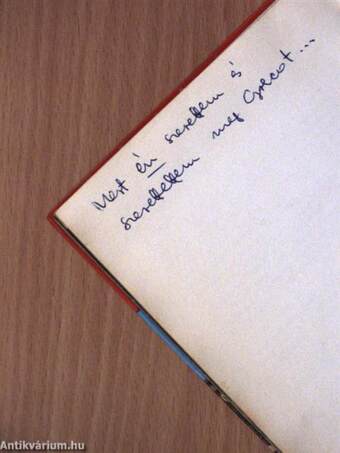 Mert én szerettem és
szerettettem meg Grecot...
Antikvárium.hu